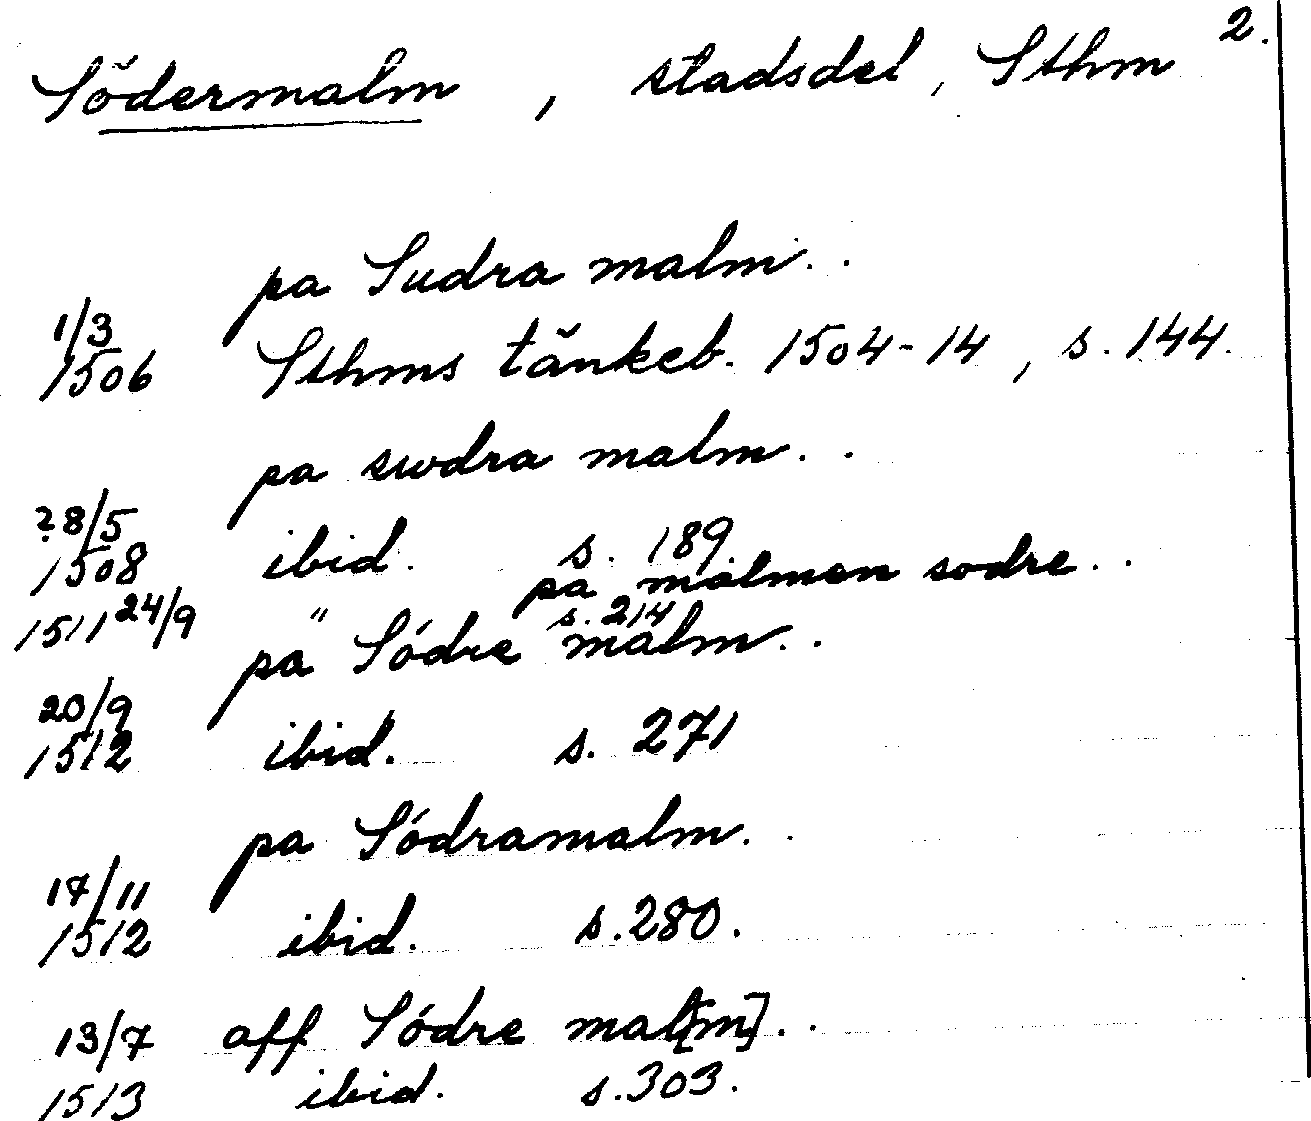 2.
Södermalm, stadsdel, Sthm
pa Sudra malm..
1/3
1506 Sthms tänkeb. 1504-14, s. 144.
pa swdra malm..
28/5
1508 ibid. s. 189.
pa malmen sodre..
1511 24/9 " s. 214
pa Sódre malm..
20/9
1512 ibid. s. 271
pa Sódramalm..
17/11
1512 ibid. s. 280.
13/7 aff Sódre mal[m]..
1513 ibid. s. 303.